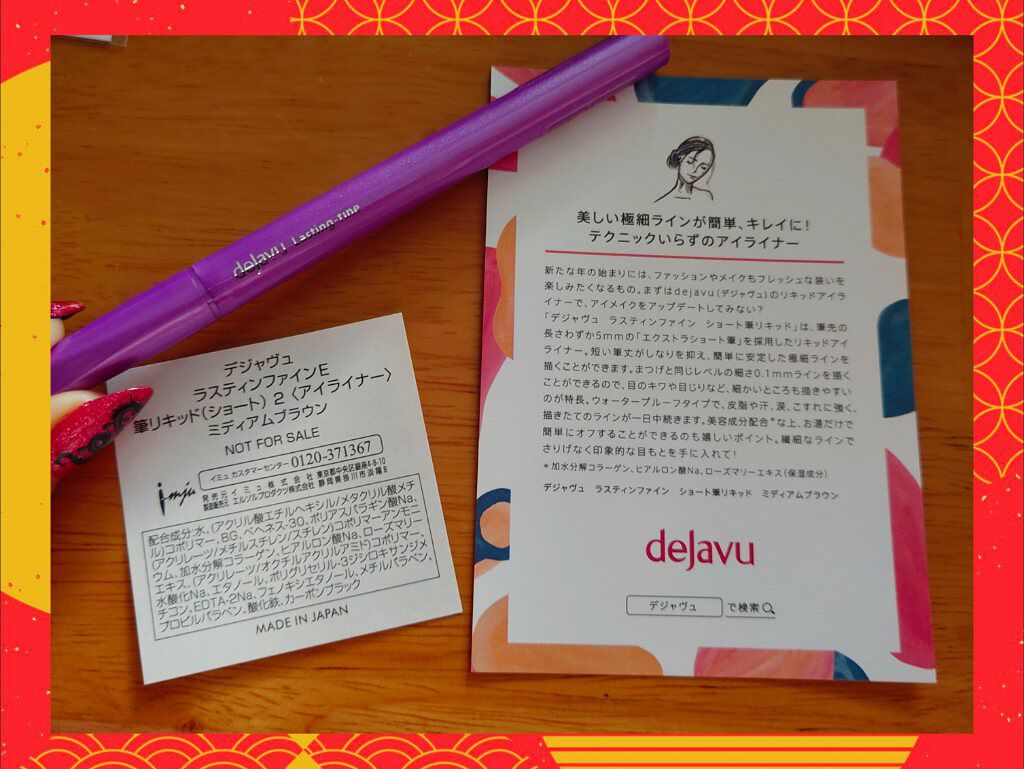 dejavu Lasting-fine
デジャヴュ
ラスティンファインE
筆リキッド(ショート) 2 〈アイライナー〉
ミディアムブラウン
NOT FOR SALE
イミュ カスタマーセンター 0120-371367
imju
発売元 イミュ株式会社 東京都中央区銀座4-8-10
製造販売元 エルソルプロダクツ株式会社 静岡県掛川市浜陽8
配合成分:水、(アクリル酸エチルヘキシル/メタクリル酸メチ
ル)コポリマー、BG、ベヘネス-30、ポリアスパラギン酸Na、
(アクリレーツ/メチルスチレン/スチレン)コポリマーアンモニ
ウム、加水分解コラーゲン、ヒアルロン酸Na、ローズマリー
エキス、(アクリレーツ/オクチルアクリルアミド)コポリマー、
水酸化Na、エタノール、ポリグリセリル-3ジシロキサンジメ
チコン、EDTA-2Na、フェノキシエタノール、メチルパラベン、
プロピルパラベン、酸化鉄、カーボンブラック
MADE IN JAPAN
美しい極細ラインが簡単、キレイに!
テクニックいらずのアイライナー
新たな年の始まりには、ファッションやメイクもフレッシュな装いを
楽しみたくなるもの。まずはdejavu(デジャヴュ)のリキッドアイラ
イナーで、アイメイクをアップデートしてみない?
「デジャヴュ ラスティンファイン ショート筆リキッド」は、筆先の
長さわずか5mmの「エクストラショート筆」を採用したリキッドアイ
ライナー。短い筆丈がしなりを抑え、簡単に安定した極細ラインを
描くことができます。まつげと同じレベルの細さ0.1mmラインを描く
ことができるので、目のキワや目じりなど、細かいところも描きやすい
のが特長。ウォータープルーフタイプで、皮脂や汗、涙、こすれに強く、
描きたてのラインが一日中続きます。美容成分配合*な上、お湯だけで
簡単にオフすることができるのも嬉しいポイント。繊細なラインで
さりげなく印象的な目もとを手に入れて!
*加水分解コラーゲン、ヒアルロン酸Na、ローズマリーエキス(保湿成分)
デジャヴュ ラスティンファイン ショート筆リキッド ミディアムブラウン
dejavu
デジャヴュ で検索